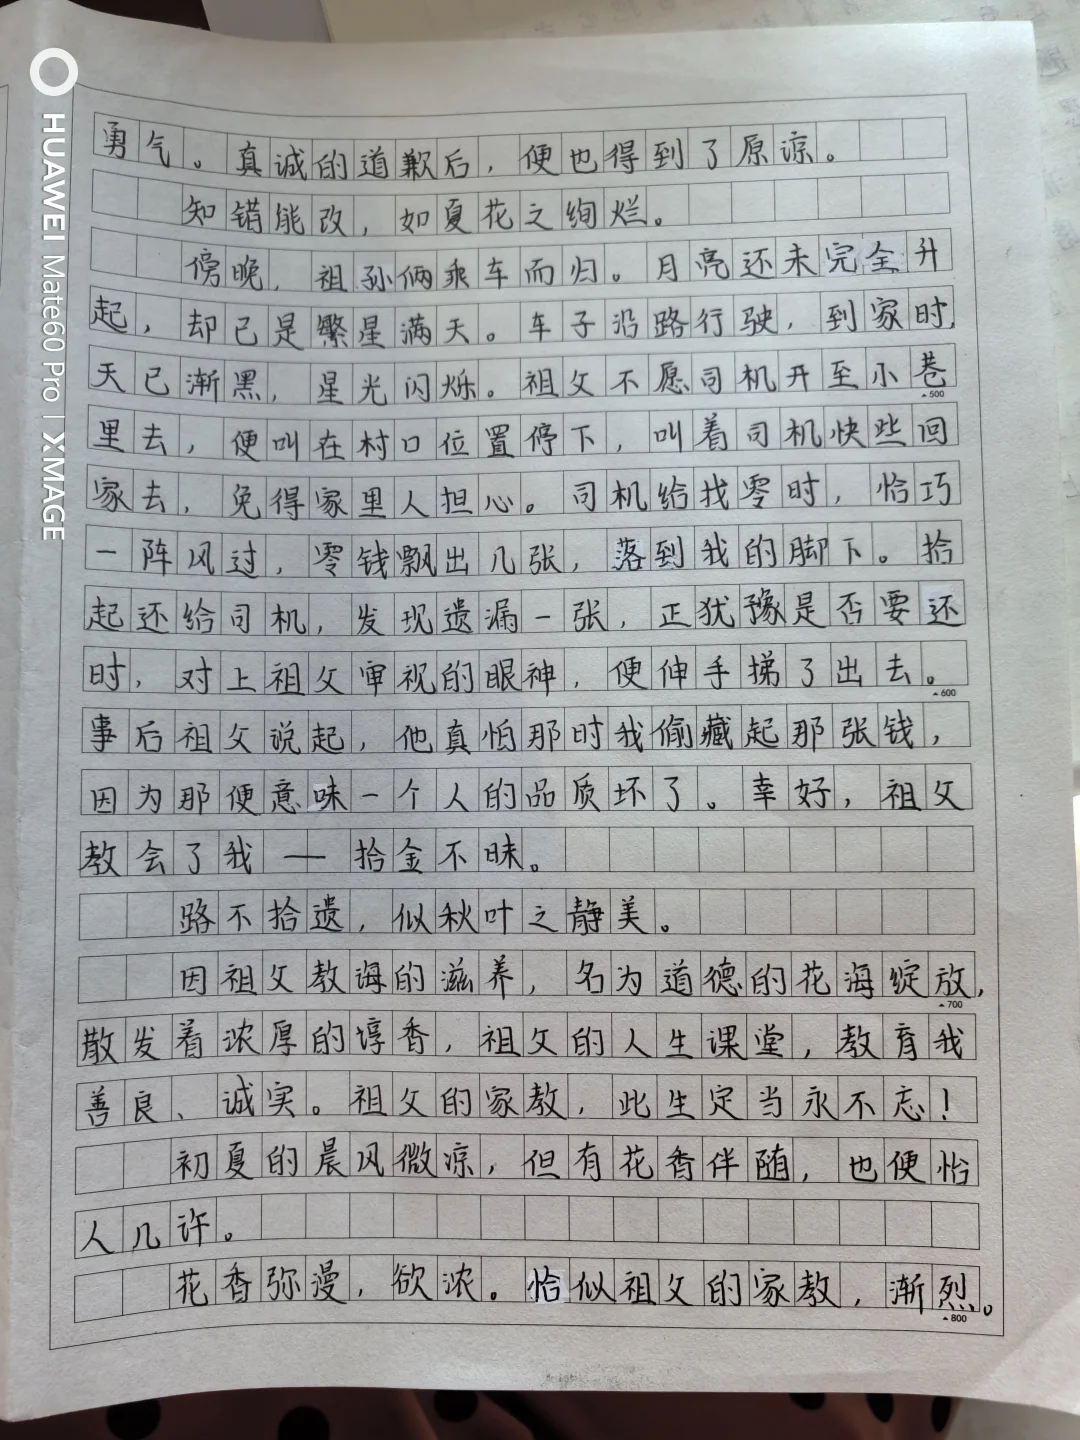 勇气。真诚的道歉后，便也得到了原凉。
知错能改，如夏花之绚烂。
傍晚，祖孙俩乘车而归。月亮还未完全升
起，却已是繁星满天。车子沿路行驶，到家时，
天已渐黑，星光闪烁。祖父不愿司机开至小巷
500
里去，便叫在村口位置停下，叫着司机快些回
家去，免得家里人担心。司机给找零时，恰巧
一阵风过，零钱飘出几张，落到我的脚下。拾
起还给司机，发现遗漏一张，正犹豫是否要还
时，对上祖父审视的眼神，便伸手挮了出去。
600
事后祖父说起，他真怕那时我偷藏起那张钱，
因为那便意味一个人的品质坏了。幸好，祖父
教会了我——拾金不昧。
路不拾遗，似秋叶之静美。
因祖父教海的滋养，名为道德的花海绽放，
700
散发着浓厚的淳香，祖父的人生课堂，教育我
善良、诚实。祖父的家教，此生定当永不忘！
初夏的晨风微凉，但有花香伴随，也便怡
人几许。
花香弥漫，欲浓。恰似祖父的家教，渐烈。
800
HUAWEI Mate60 Pro | XMAGE